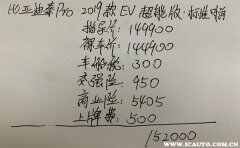 比亚迪秦Pro 2019款 EV 超能版 标准
指导价: 149900
裸车价: 144900
车船税: 300
交强险: 950
商业险: 5405
上牌费: 500
152000
www.icauto.com.cn